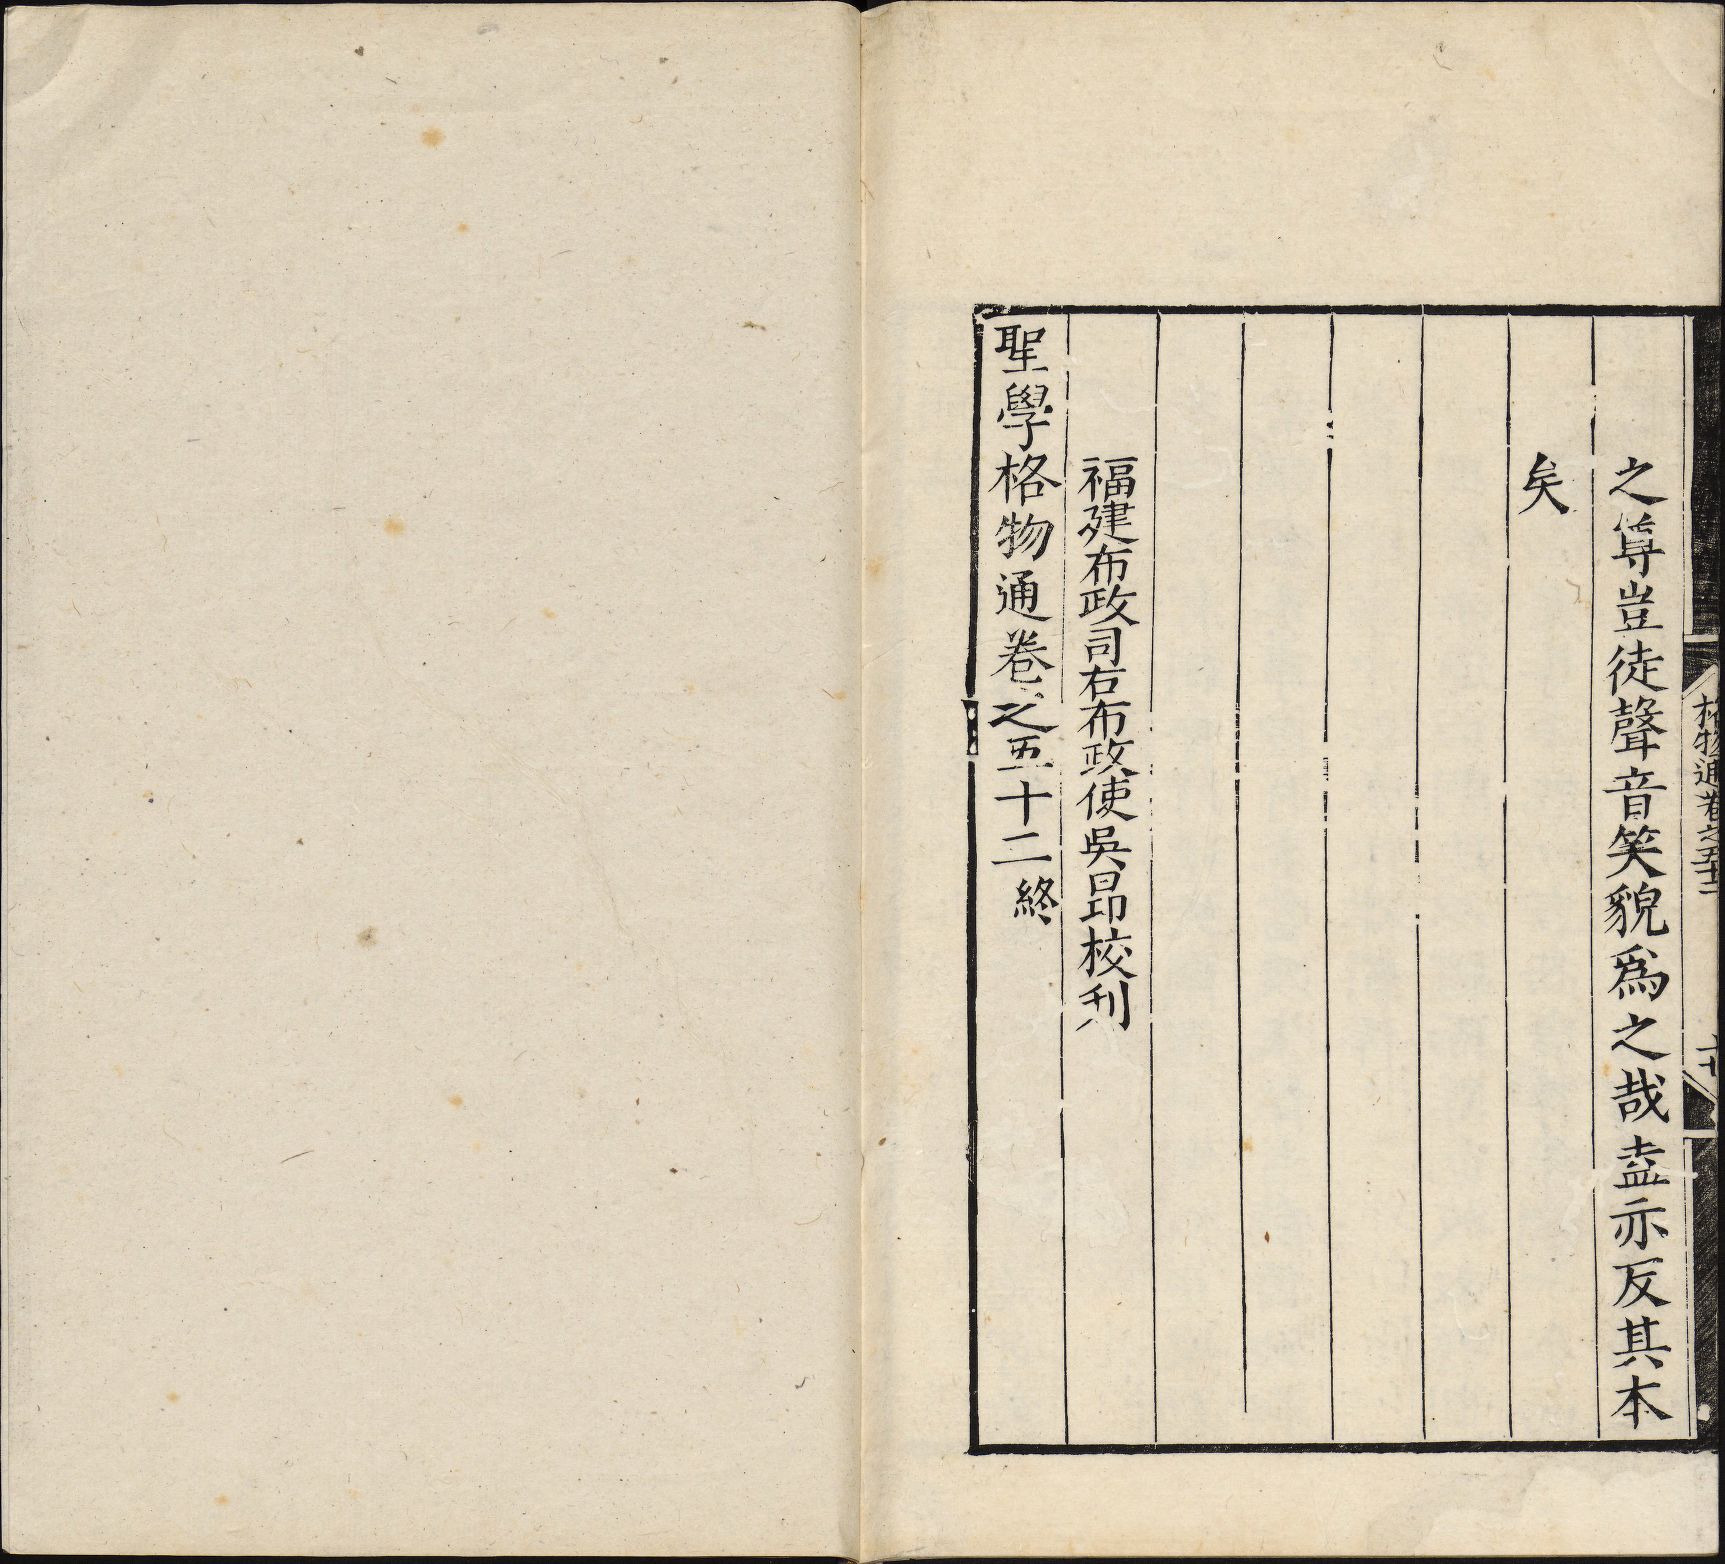 格物通卷之五十二
之尊豈徒聲音笑貌爲之哉盍亦反其本
矣
福建布政司右布政使吳昂校刋
聖學格物通卷之五十二終